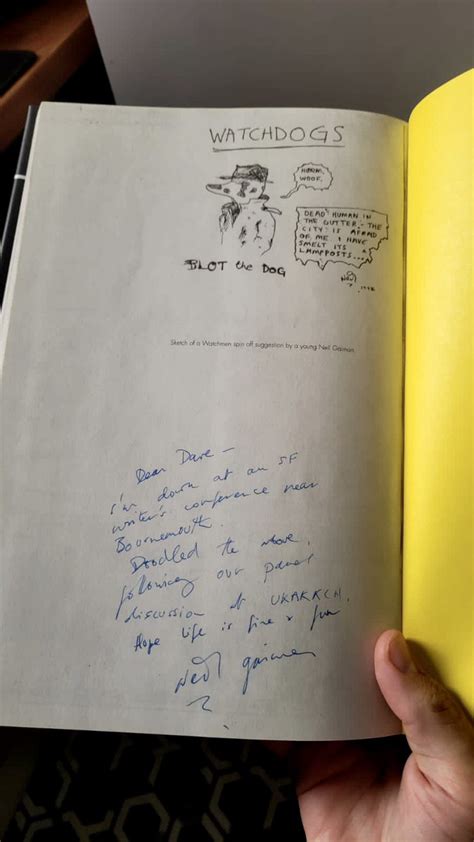 WATCHDOGS
HRRM.
WOOF.
DEAD HUMAN IN
THE GUTTER. THE
CITY IS AFRAID
OF ME. I HAVE
SMELT ITS
LAMPPOSTS...
Neil
BLOT the DOG
Sketch of a Watchmen spin off suggestion by a young Neil Gaiman.
Dear Dave –
I'm down at an SF
writer's conference near
Bournemouth.
Doodled the above,
following our panel
discussion at
Hope life is fine & fun
Neil Gaiman